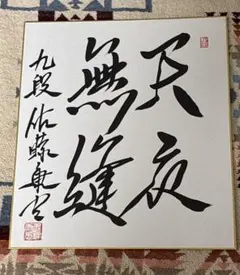 天衣
無縫
九段 佐藤康光